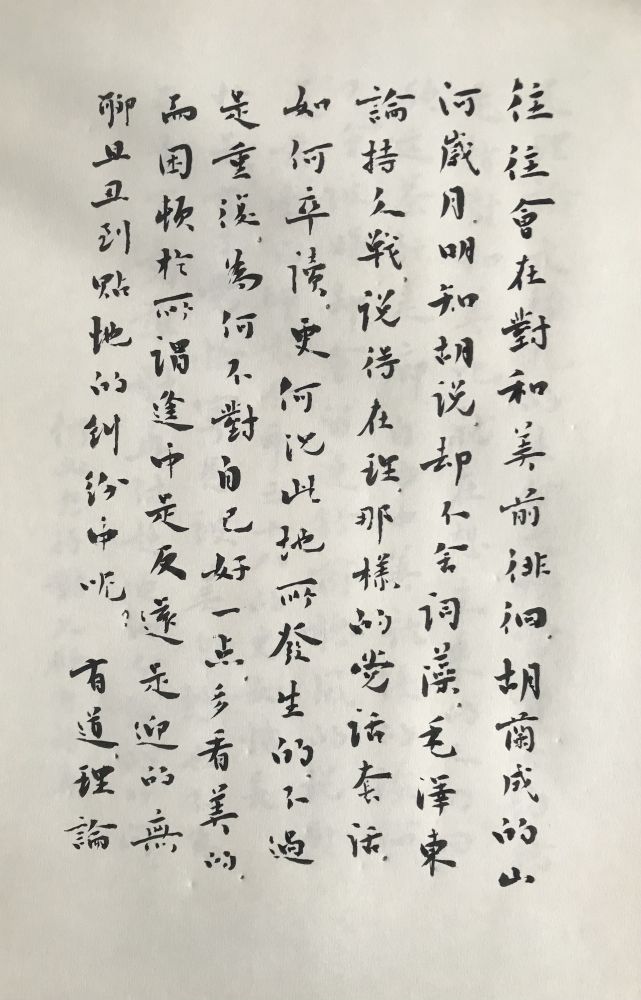 往往會在對和美前徘徊.胡蘭成的山
河歲月.明知胡说.却不舍词藻.毛澤東
論持久戰.说得在理.那樣的党話套话.
如何卒讀.更何况此地所發生的.不過
是重複.為何不對自己好一点.多看美的.
而困頓於所謂逢中是反還是迎的無
聊且且到點地的糾紛中呢? 有道.理論